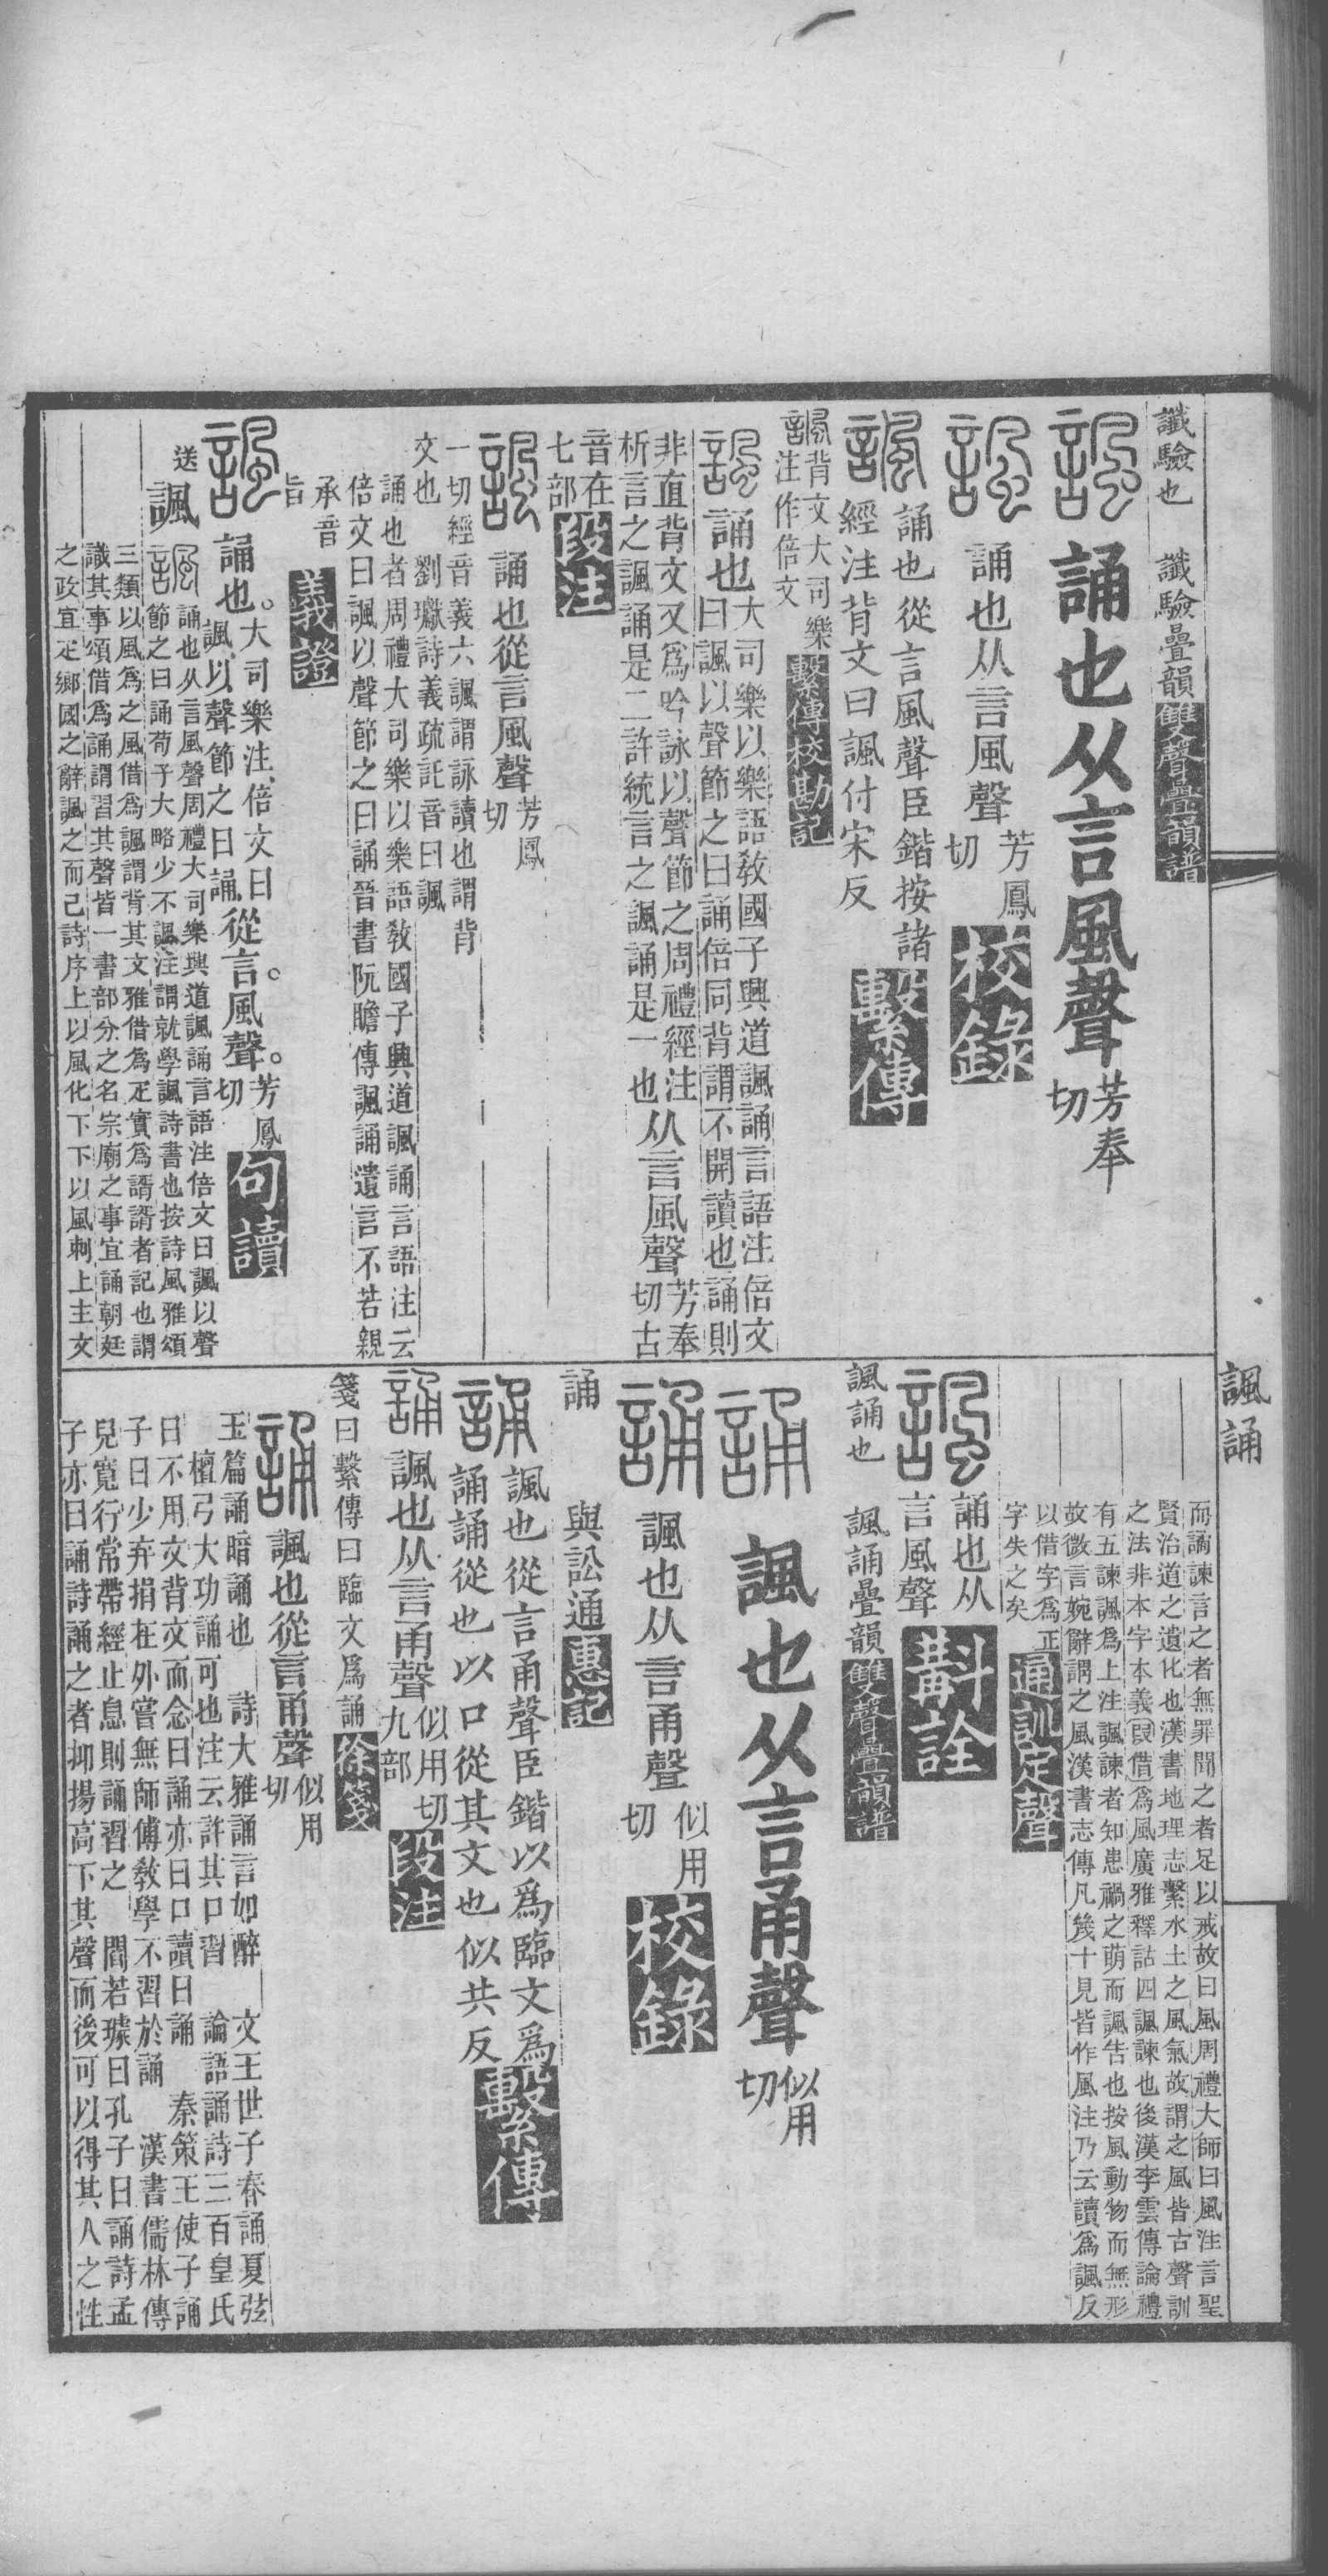 讖驗也　讖驗疊韻雙聲疊韻譜
諷 誦也从言風聲芳奉切
諷 誦也从言風聲芳鳳切校錄
諷 誦也從言風聲臣鍇按諸
經注背文曰諷付宋反繫傳
諷背文大司樂
注作倍文繫傳校勘記
諷 誦也大司樂以樂語敎國子興道諷誦言語注倍文
曰諷以聲節之曰誦倍同背謂不開讀也誦則
非直背文又爲吟詠以聲節之周禮經注
析言之諷誦是二許統言之諷誦是一也从言風聲芳奉切古
音在
七部段注
諷 誦也從言風聲芳鳳切
一切經音義六諷謂詠讀也謂背
文也　劉瓛詩義疏訖音曰諷
誦也者周禮大司樂以樂語敎國子興道諷誦言語注云
倍文曰諷以聲節之曰誦晉書阮瞻傳諷誦遺言不若親
承音
旨義證
諷 誦也。大司樂注、倍文曰
諷、以聲節之曰誦、從言。風聲。芳鳳切句讀
送 諷 諷誦也从言風聲周禮大司樂興道諷誦言語注倍文曰諷以聲
節之曰誦荀子大略少不諷注謂就學諷詩書也按詩風雅頌
三類以風爲之風借爲諷謂背其文雅借爲疋實爲諝諝者記也謂
識其事頌借爲誦謂習其聲皆一書部分之名宗廟之事宜誦朝廷
之政宜疋鄉國之辭諷之而已詩序上以風化下下以風刺上主文
諷誦
而譎諫言之者無罪聞之者足以戒故曰風周禮大師曰風注言聖
賢治道之遺化也漢書地理志繫水土之風氣故謂之風皆古聲訓
之法非本字本義叚借爲風廣雅釋詁四諷諫也後漢李雲傳論禮
有五諫諷爲上注諷諫者知患禍之萌而諷告也按風動物而無形
故微言婉辭謂之風漢書志傳凡幾十見皆作風注乃云讀爲諷反
以借字爲正
字失之矣通訓定聲
諷 誦也从
言風聲斠詮
諷誦也　諷誦疊韻雙聲疊韻譜
誦 諷也从言甬聲似用切
誦 諷也从言甬聲似用切校錄
誦　與訟通惠記
誦 諷也從言甬聲臣鍇以爲臨文爲
誦誦從也以口從其文也似共反繫傳
誦 諷也从言甬聲似用切
九部段注
箋曰繫傳曰臨文爲誦徐箋
誦 諷也從言甬聲似用切
玉篇誦暗誦也　詩大雅誦言如醉　文王世子春誦夏弦
檀弓大功誦可也注云許其口習　論語誦詩三百皇氏
曰不用文背文而念曰誦亦曰口讀曰誦　秦策王使子誦
子曰少弃捐在外嘗無師傅敎學不習於誦　漢書儒林傳
兒寬行常帶經止息則誦習之　閻若璩曰孔子曰誦詩孟
子亦曰誦詩誦之者抑揚高下其聲而後可以得其人之性